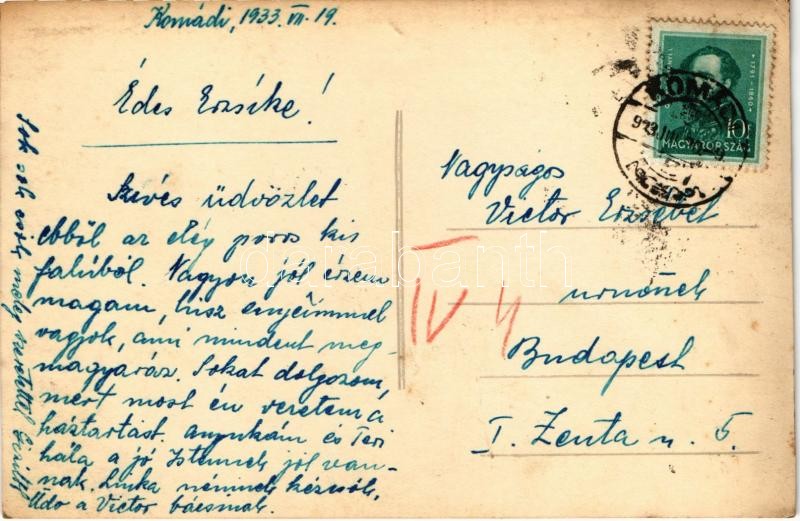 Komádi, 1933. VII. 19.
Édes Erzsike!
Szíves üdvözlet
ebből az elég poros kis
faluból. Nagyon jól érzem
magam, hisz enyéimmel
vagyok, ami mindent meg-
magyaráz. Sokat dolgozom,
mert most én vezetem a
háztartást. Anyukám és Teri
hála a jó Istennek jól van-
nak. Linka néninek kézcsók,
Üdv a Victor bácsinak.
Sok sok csók, meleg szeretettel
Nagyságos
Victor Erzsébet
urnőnek
Budapest
I. Zenta u. 5.
IV 4
1791-1860
10f
MAGYARORSZÁG
KOMÁDI
darabanth